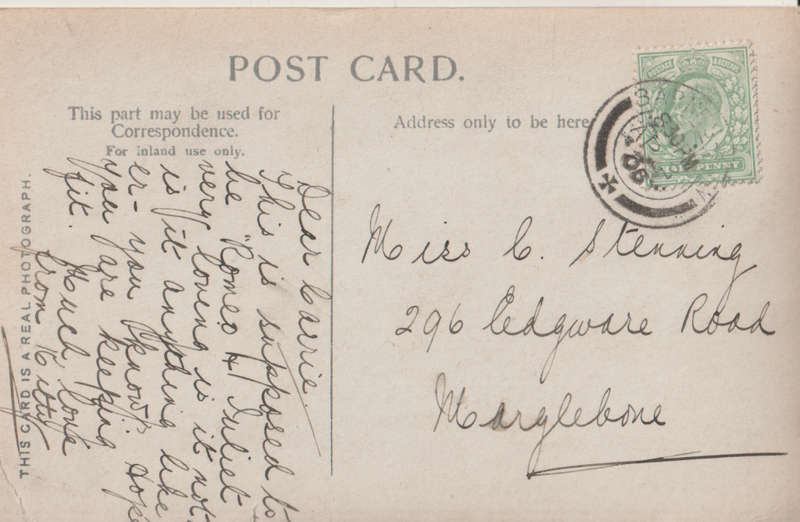 POST CARD.
This part may be used for
Correspondence.
For inland use only.
Address only to be here
THIS CARD IS A REAL PHOTOGRAPH.
Dear Carrie
This is supposed to
be "Romeo & Juliet"
very loving is it not,
is it anything like
er- you know? Hope
you are keeping
fit. Much love
from Kitty
Miss C. Stenning
296 Edgware Road
Marylebone
PENNY
06